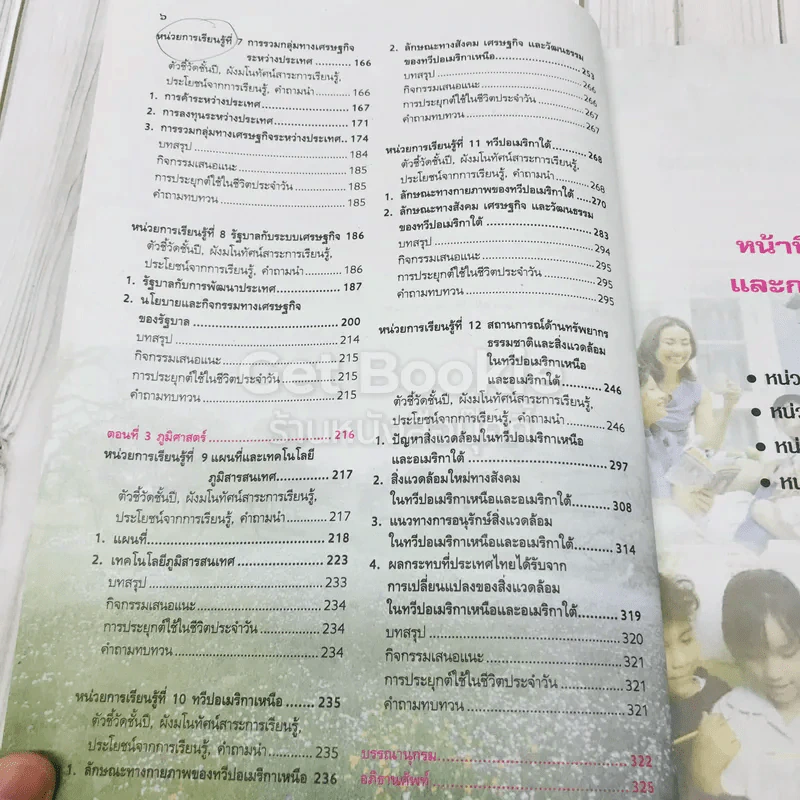 ๖
หน่วยการเรียนรู้ที่ 7 การรวมกลุ่มทางเศรษฐกิจ
ระหว่างประเทศ ........... 166
ตัวชี้วัดชั้นปี, ผังมโนทัศน์สาระการเรียนรู้,
ประโยชน์จากการเรียนรู้, คำถามนำ ........... 166
1. การค้าระหว่างประเทศ ........... 167
2. การลงทุนระหว่างประเทศ ........... 171
3. การรวมกลุ่มทางเศรษฐกิจระหว่างประเทศ.. 174
บทสรุป ........... 184
กิจกรรมเสนอแนะ ........... 185
การประยุกต์ใช้ในชีวิตประจำวัน ........... 185
คำถามทบทวน ........... 185
หน่วยการเรียนรู้ที่ 8 รัฐบาลกับระบบเศรษฐกิจ 186
ตัวชี้วัดชั้นปี, ผังมโนทัศน์สาระการเรียนรู้,
ประโยชน์จากการเรียนรู้, คำถามนำ ........... 186
1. รัฐบาลกับการพัฒนาประเทศ ........... 187
2. นโยบายและกิจกรรมทางเศรษฐกิจ
ของรัฐบาล ........... 200
บทสรุป ........... 214
กิจกรรมเสนอแนะ ........... 215
การประยุกต์ใช้ในชีวิตประจำวัน ........... 215
คำถามทบทวน ........... 215
ตอนที่ 3 ภูมิศาสตร์ ........... 216
หน่วยการเรียนรู้ที่ 9 แผนที่และเทคโนโลยี
ภูมิสารสนเทศ ........... 217
ตัวชี้วัดชั้นปี, ผังมโนทัศน์สาระการเรียนรู้,
ประโยชน์จากการเรียนรู้, คำถามนำ ........... 217
1. แผนที่ ........... 218
2. เทคโนโลยีภูมิสารสนเทศ ........... 223
บทสรุป ........... 233
กิจกรรมเสนอแนะ ........... 234
การประยุกต์ใช้ในชีวิตประจำวัน ........... 234
คำถามทบทวน ........... 234
หน่วยการเรียนรู้ที่ 10 ทวีปอเมริกาเหนือ ........ 235
ตัวชี้วัดชั้นปี, ผังมโนทัศน์สาระการเรียนรู้,
ประโยชน์จากการเรียนรู้, คำถามนำ ........... 235
1. ลักษณะทางกายภาพของทวีปอเมริกาเหนือ 236
2. ลักษณะทางสังคม เศรษฐกิจ และวัฒนธรรม
ของทวีปอเมริกาเหนือ ........... 253
บทสรุป ........... 266
กิจกรรมเสนอแนะ ........... 266
การประยุกต์ใช้ในชีวิตประจำวัน ........... 267
คำถามทบทวน ........... 267
หน่วยการเรียนรู้ที่ 11 ทวีปอเมริกาใต้ ........... 268
ตัวชี้วัดชั้นปี, ผังมโนทัศน์สาระการเรียนรู้,
ประโยชน์จากการเรียนรู้, คำถามนำ ........... 268
1. ลักษณะทางกายภาพของทวีปอเมริกาใต้ .... 270
2. ลักษณะทางสังคม เศรษฐกิจ และวัฒนธรรม
ของทวีปอเมริกาใต้ ........... 283
บทสรุป ........... 294
กิจกรรมเสนอแนะ ........... 295
การประยุกต์ใช้ในชีวิตประจำวัน ........... 295
คำถามทบทวน ........... 295
หน่วยการเรียนรู้ที่ 12 สถานการณ์ด้านทรัพยากร
ธรรมชาติและสิ่งแวดล้อม
ในทวีปอเมริกาเหนือ
และอเมริกาใต้ ........... 246
ตัวชี้วัดชั้นปี, ผังมโนทัศน์สาระการเรียนรู้,
ประโยชน์จากการเรียนรู้, คำถามนำ ........... 246
1. ปัญหาสิ่งแวดล้อมในทวีปอเมริกาเหนือ
และอเมริกาใต้ ........... 297
2. สิ่งแวดล้อมใหม่ทางสังคม
ในทวีปอเมริกาเหนือและอเมริกาใต้ ........... 308
3. แนวทางการอนุรักษ์สิ่งแวดล้อม
ในทวีปอเมริกาเหนือและอเมริกาใต้ ........... 314
4. ผลกระทบที่ประเทศไทยได้รับจาก
การเปลี่ยนแปลงของสิ่งแวดล้อม
ในทวีปอเมริกาเหนือและอเมริกาใต้ ........... 319
บทสรุป ........... 320
กิจกรรมเสนอแนะ ........... 321
การประยุกต์ใช้ในชีวิตประจำวัน ........... 321
คำถามทบทวน ........... 321
บรรณานุกรม ........... 322
อภิธานศัพท์ ........... 325
และก
• หน่ว
• หน่
• หน่
• หน
Get Bookie